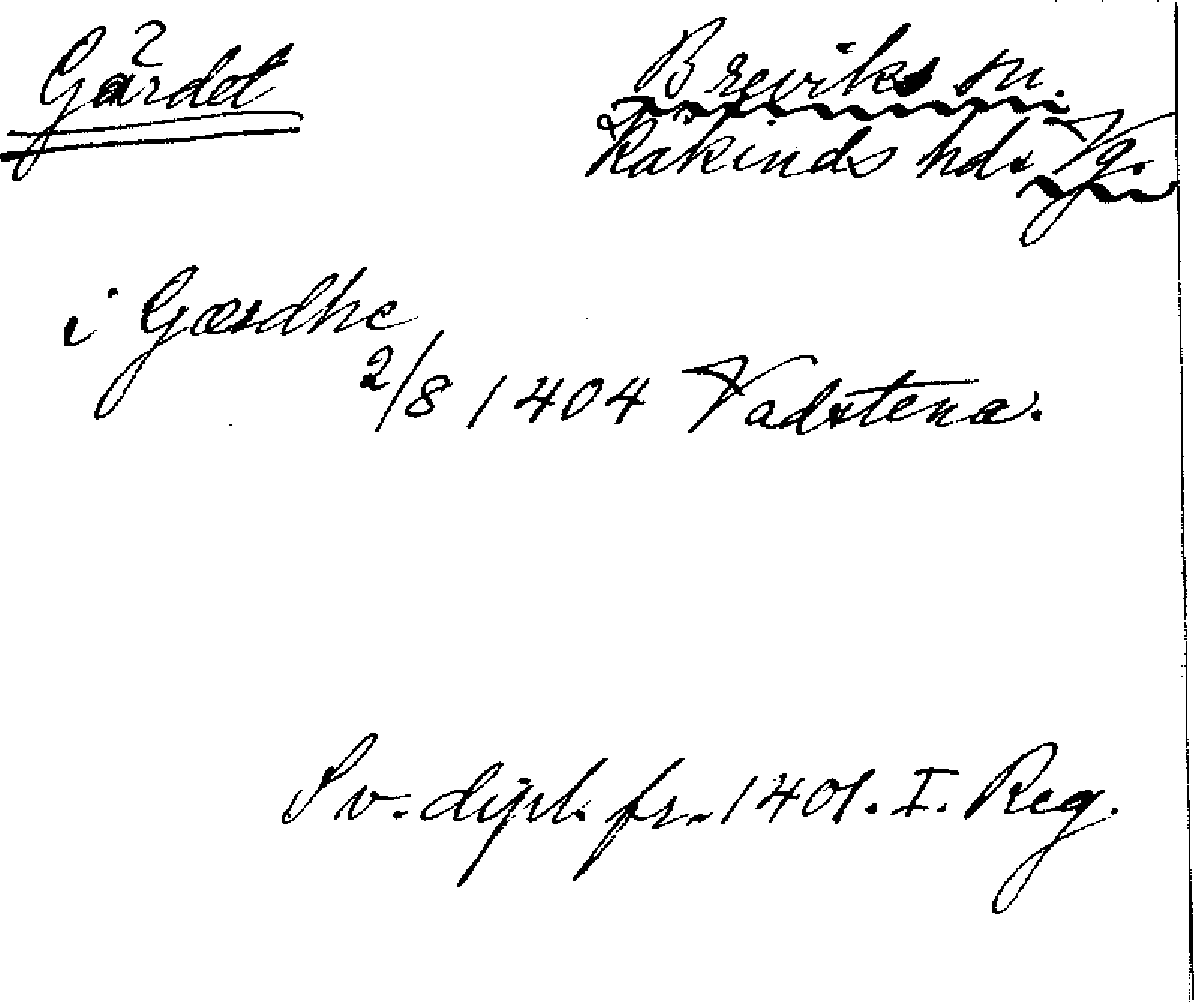 Gärdet
Breviks sn.
Kåkinds hds Vg.
i Gærdhe
2/8 1404 Vadstena.
Sv. dipl. fr. 1401. I. Reg.